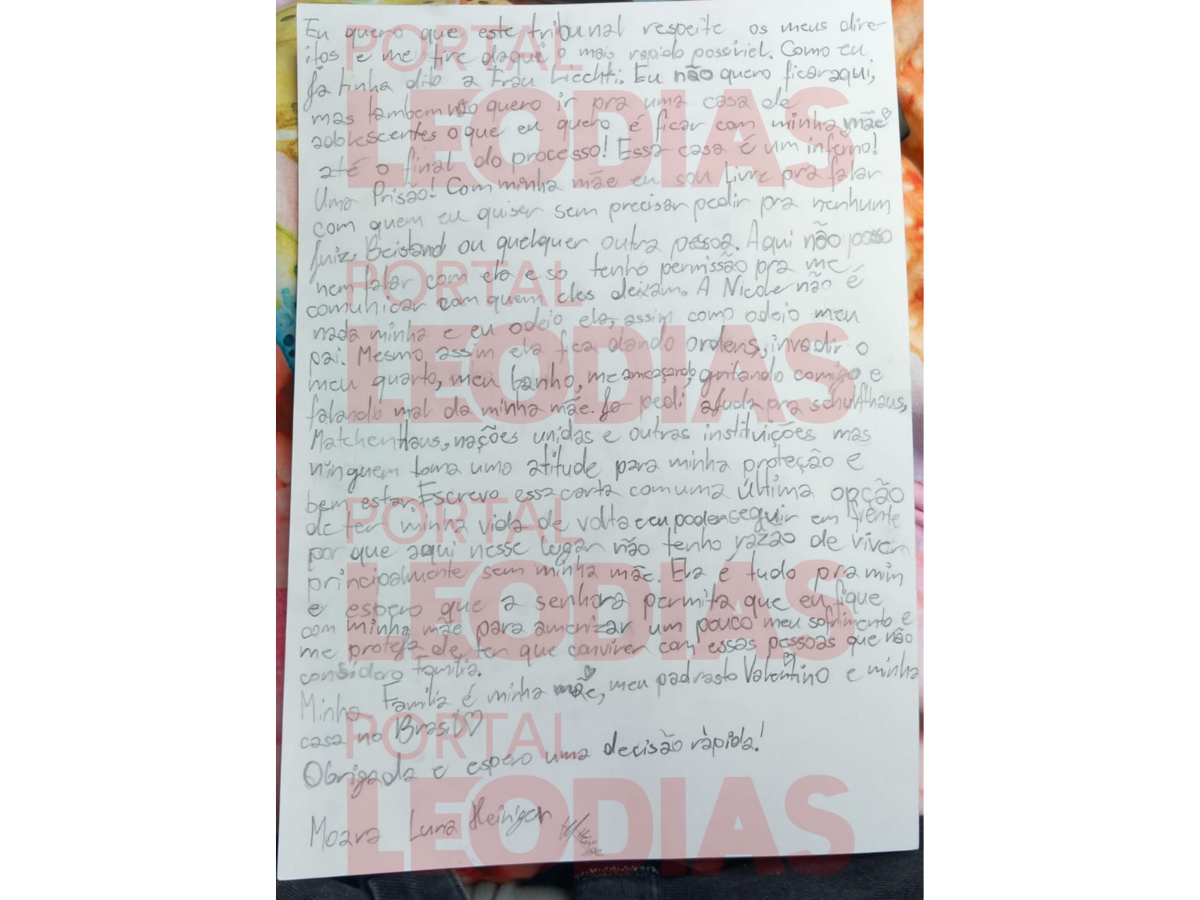 Eu quero que este tribunal respeite os meus dire-
itos e me tire daqui o mais rapido possiviel. Como eu
ja tinha dito a Frau Liechti. Eu não quero ficar aqui,
mas tambem não quero ir pra uma casa de
adolescentes o que eu quero é ficar com minha mãe
até o final do processo! Essa casa é um inferno!
Uma Prisão! Com minha mãe eu sou livre pra falar
com quem eu quiser sem precisar pedir pra nenhum
juiz, Beistand ou quelquer outra pessoa. Aqui não posso
nem falar com ela e so tenho permissão pra me
comunicar com quem eles deixam. A Nicole não é
nada minha e eu odeio ela, assim como odeio meu
pai. Mesmo assim ela fica dando ordens, invadir o
meu quarto, meu banho, me ameaçando, gritando comigo e
falando mal da minha mãe. Ja pedi ajuda pra schulfhaus,
MatchenHaus, nações unidas e outras instituições mas
ninguem toma uma atitude para minha proteção e
bem estar. Escrevo essa carta com uma última opção
de ter minha vida de volta e eu poder seguir em frente
por que aqui nesse lugar não tenho razão de viver
principalmente sem minha mãe. Ela é tudo pra mim
e espero que a senhora permita que eu fique
com minha mãe para amenizar um pouco meu sofrimento e
me proteja de ter que conviver com essas pessoas que não
considero família.
Minha Família é minha mãe, meu padrasto Valentino e minha
casa no Brasil
Obrigada e espero uma decisão ràpida!
Moara Luna Heiniger
PORTAL
LEODIAS
PORTAL
LEODIAS
PORTAL
LEODIAS
PORTAL
LEODIAS